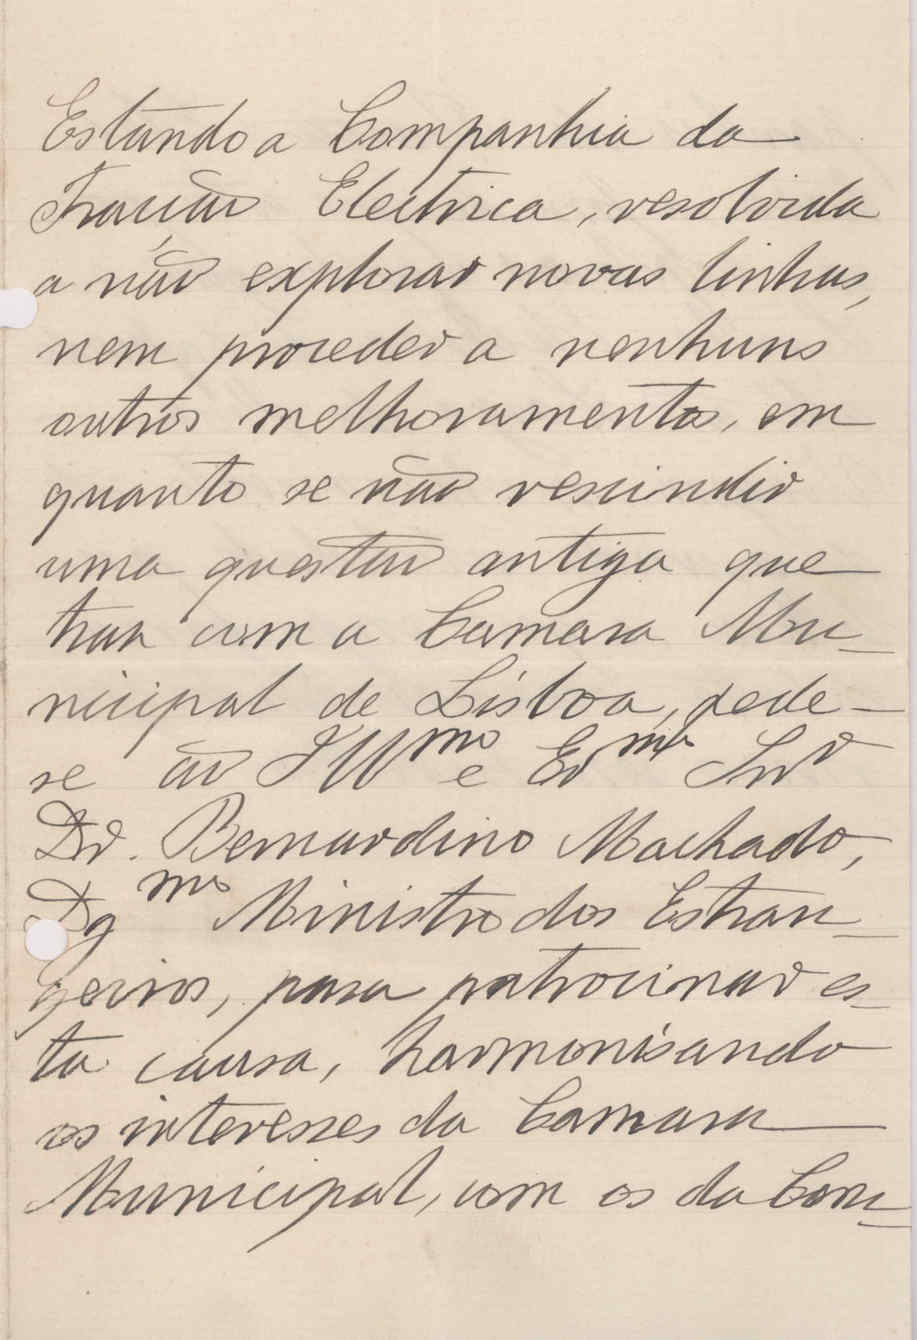 Estando a Companhia da
Tracção Electrica, resolvida
a não explorar novas linhas,
nem proceder a nenhuns
outros melhoramentos, em
quanto se não rescindir
uma questão antiga que
traz com a Camara Mu-
nicipal de Lisboa, pede-
se ao Illmo e Exmo Snr
Dr. Bernardino Machado,
Dgmo Ministro dos Estran-
geiros, para patrocinar es-
ta causa, harmonisando
os interesses da Camara
Municipal, com os da Com-